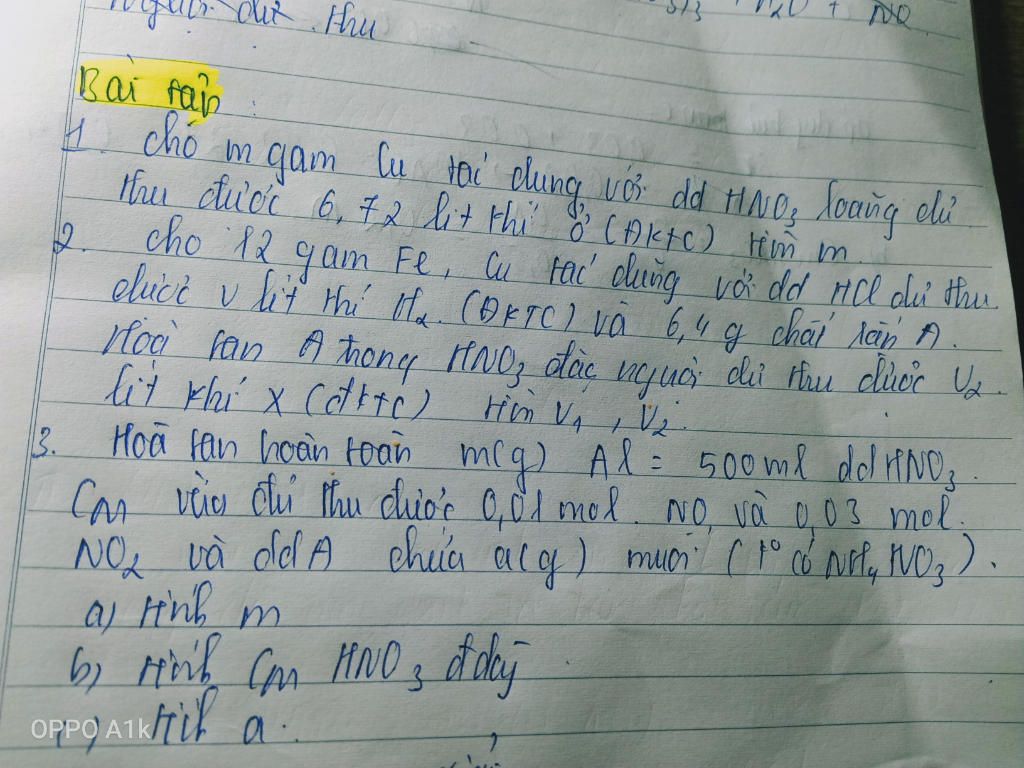 người dư thu
N2O + NO
Bài tập
1. Cho m gam Cu tác dụng với dd HNO3 loãng dư
thu được 6,72 lit khí ở (ĐKTC) tìm m.
2. cho 12 gam Fe, Cu tác dụng với dd HCl dư thu
được v lít khí H2 (ĐKTC) và 6,4 g chất rắn A.
Hoà tan A trong HNO3 đặc nguội dư thu được V2
lít khí X (đktc) tìm V1, V2.
3. Hoà tan hoàn toàn m(g) Al = 500ml ddHNO3
CM vừa đủ thu được 0,01 mol NO và 0,03 mol
NO2 và ddA chứa a(g) muối (to có NH4NO3).
a) tính m
b) tính CM HNO3 đ dày
c) tính a.
OPPO A1k